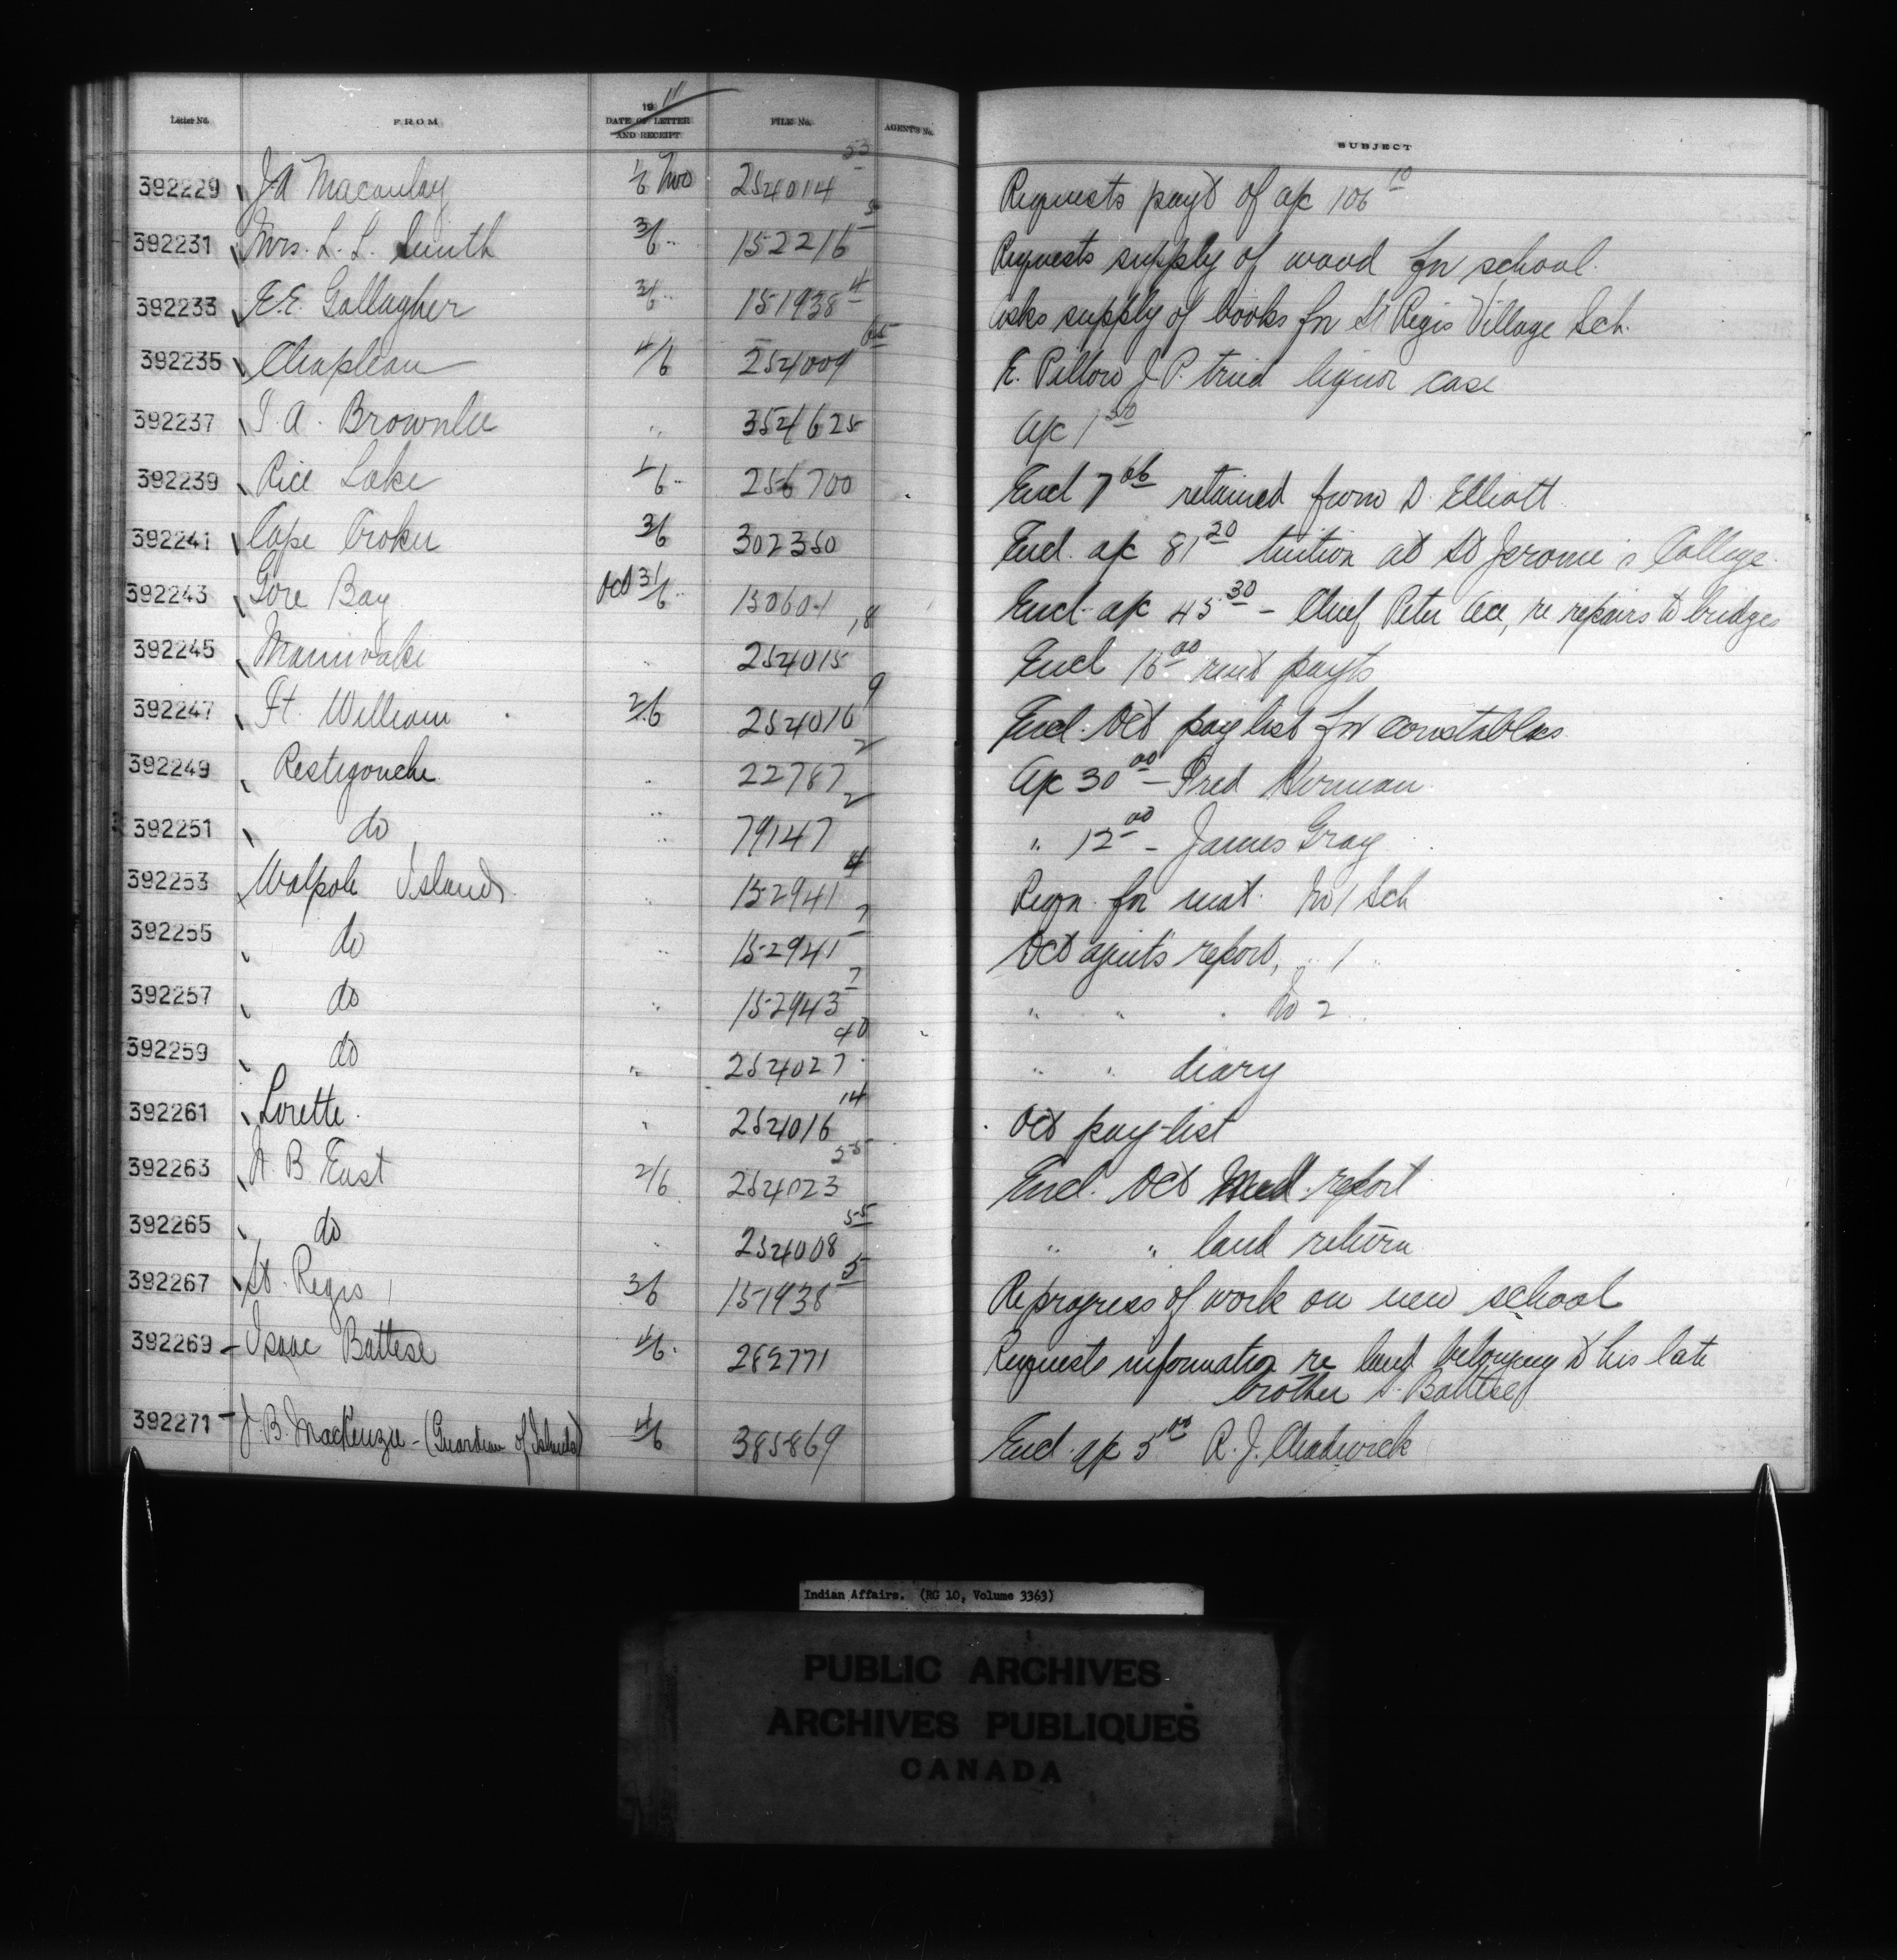 Letter No. FROM 1911 DATE OF LETTER AND RECEIPT FILE No. AGENT'S No. SUBJECT
392229 J A Macaulay 1/6 Nov 254014 53 Requests payt of a/c 106 10
392231 Mrs. L. L. Smith 3/6 " 152216 5 Requests supply of wood for school.
392233 E.E. Gallagher 3/6 " 151938 4 Asks supply of books for St Regis Village Sch.
392235 Chapleau 4/6 254009 65 E. Pillow J.P. tried liquor case
392237 T. A. Brownlee " 354625 A/c 1 50
392239 Rice Lake 4/6 " 256700 Encl 7 66 retained from D. Elliott
392241 Cape Croker 3/6 302350 Encl. a/c 81 20 tuition at St Jerome's College.
392243 Gore Bay Oct 31/6 " 150604 Encl. a/c 45 30 - Chief Peter Ace, re repairs to bridges
392245 Maniwaki " 254015 18 Encl 16 00 rent payts
392247 Ft. William 2/6 254016 9 Encl. Oct pay list for constables
392249 Restigouche " 22787 2 A/c 30 00 - Fred Herman
392251 do " 79147 2 " 12 00 - James Gray
392253 Walpole Island " 152941 4 Reqn. for mat. No 1 Sch
392255 do " 152941 7 Oct agent's report, " 1 "
392257 do " 152943 7 " " " No 2 "
392259 do " 254027 40 " " diary
392261 Lorette " 254016 14 Oct pay-list
392263 N. B. East 2/6 254023 55 Encl. Oct Med. report
392265 do " 254008 55 " " land return
392267 St. Regis 3/6 151938 5 Re progress of work on new school
392269 - Isaac Battese 4/6 282771 Requests information re land belonging to his late
brother S. Battese
392271 - J. B. MacKenzie - (Guardian of Islands) 4/6 385869 Encl. a/c 5 00 R. J. Chadwick
Indian Affairs. (RG 10, Volume 3363)
PUBLIC ARCHIVES
ARCHIVES PUBLIQUES
CANADA